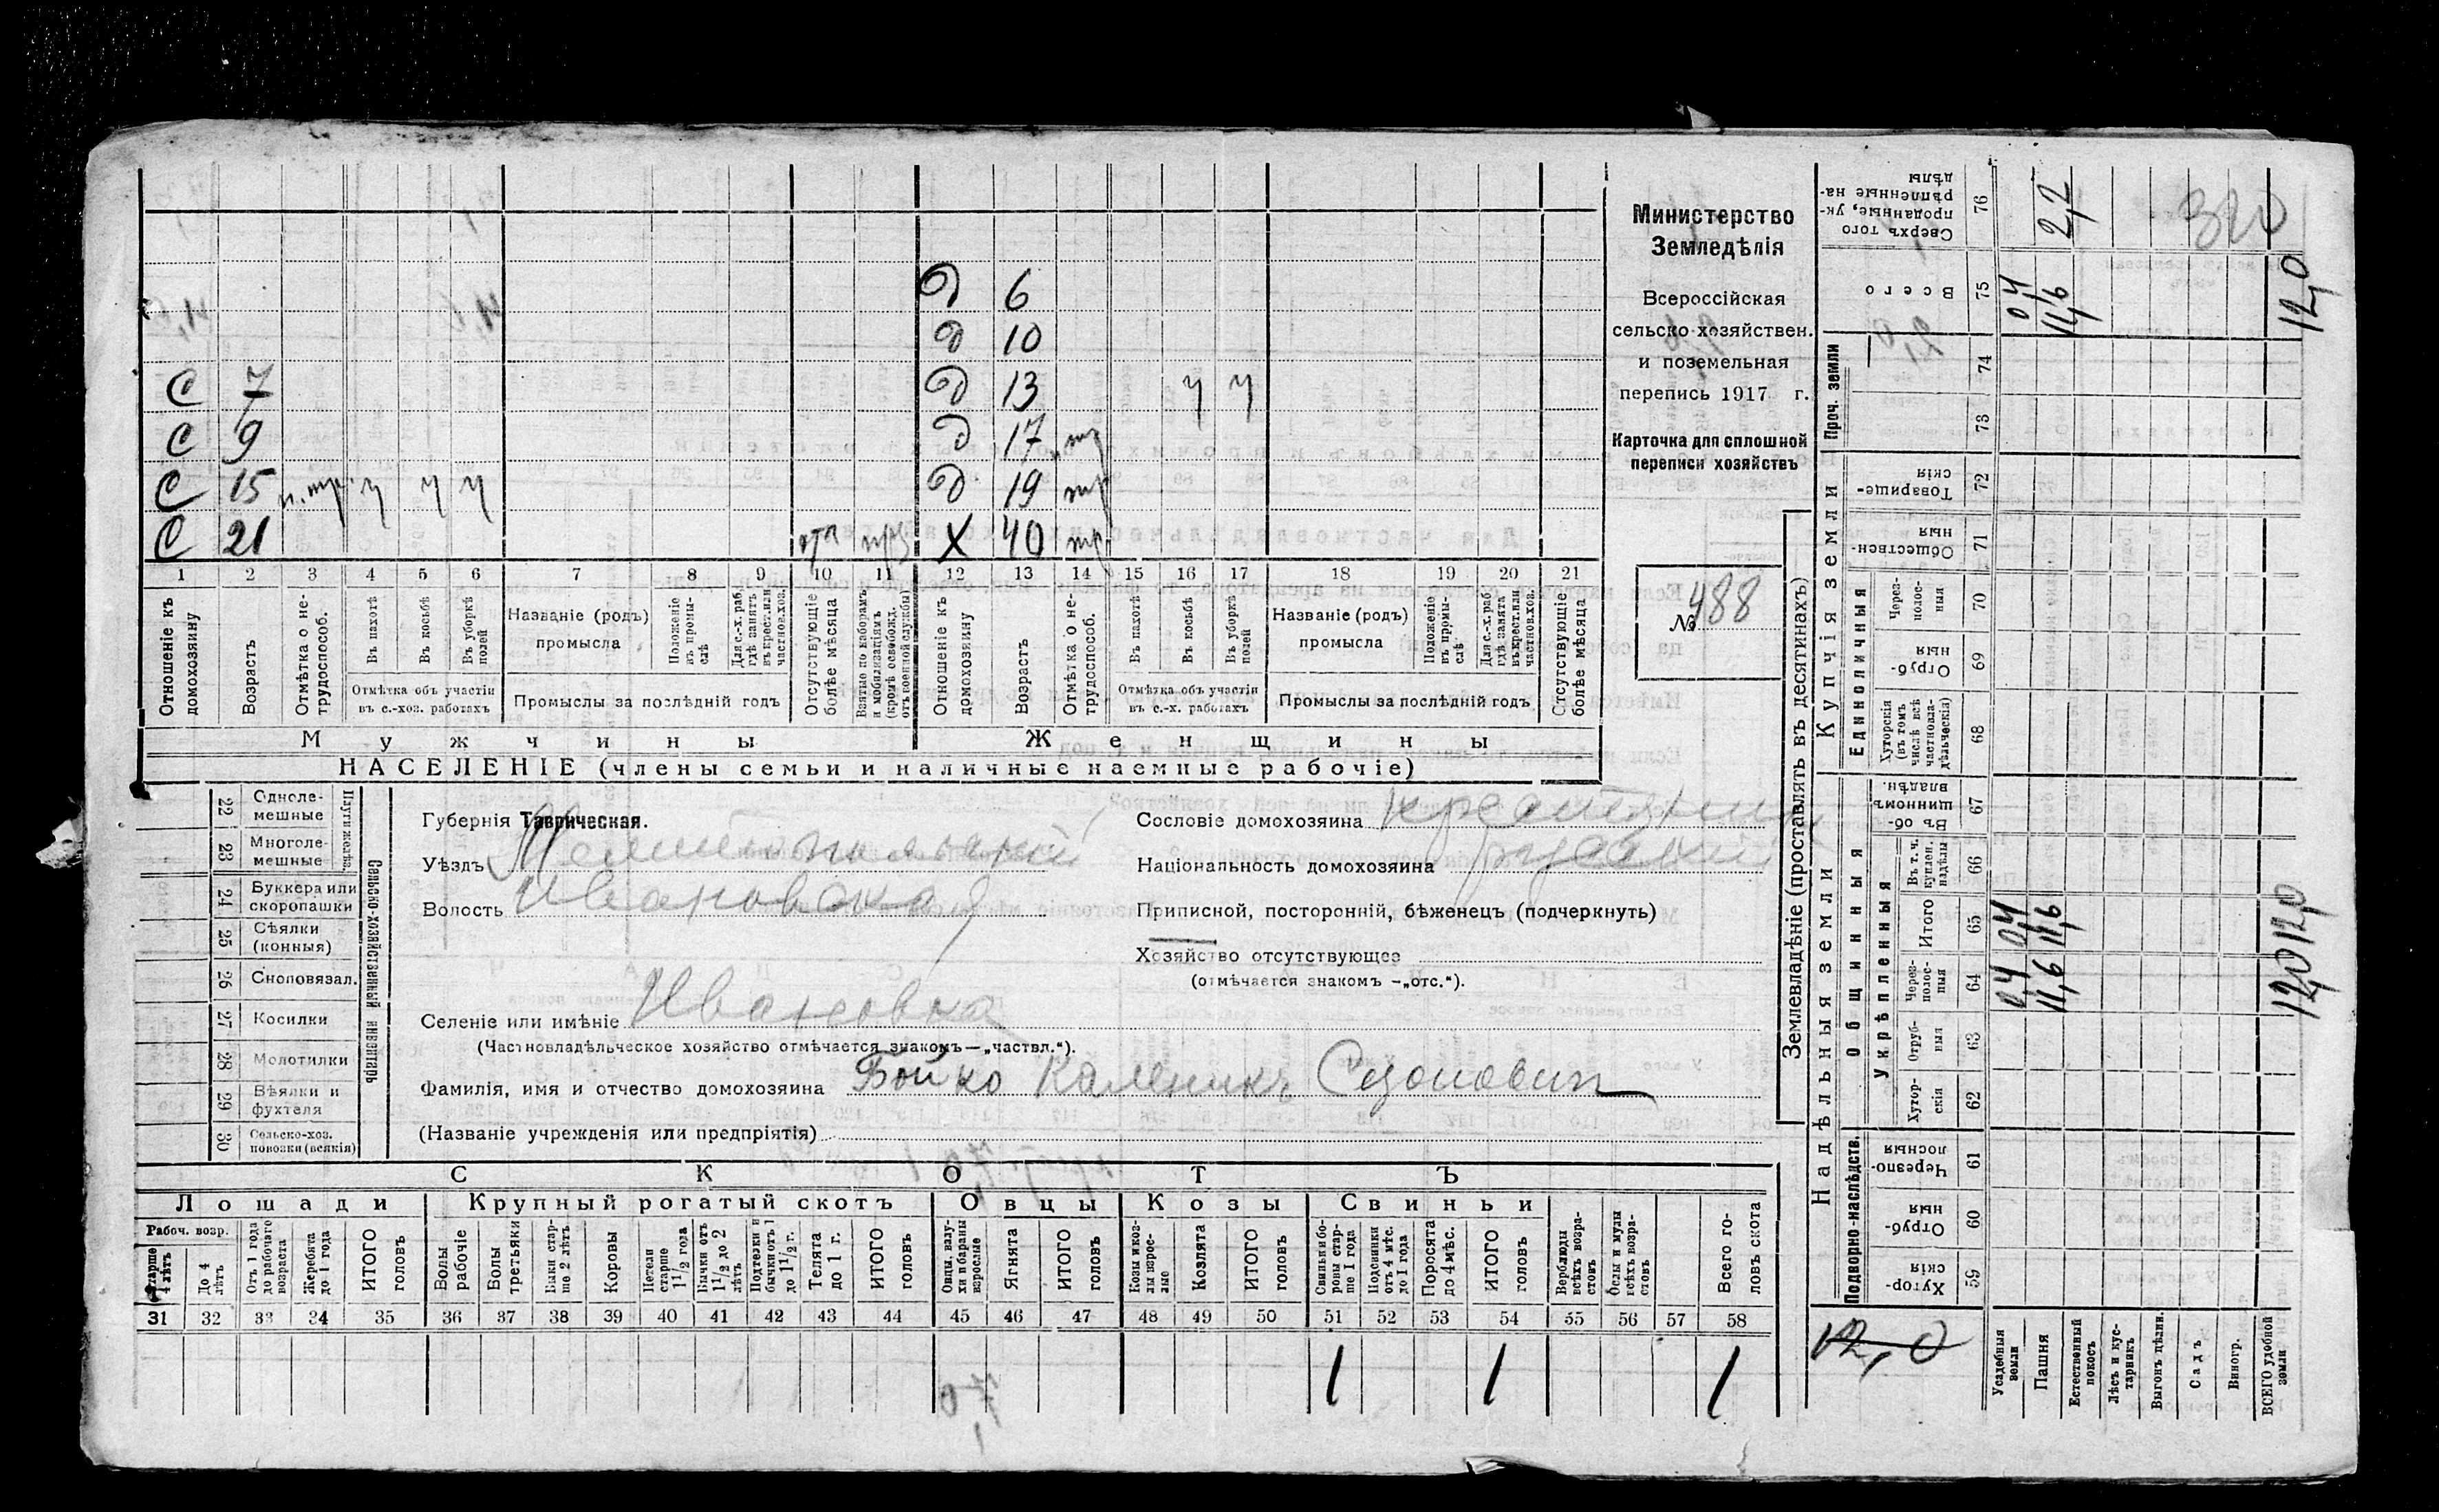 Министерство
Земледѣлія
Всероссійская
сельско-хозяйствен.
и поземельная
перепись 1917 г.
Карточка для сплошной
переписи хозяйствъ
№ 488
Д 6
Д 10
С 7 Д 13 ч ч
С 9 Д 17 тр
С 15 п. тр. ч ч ч Д 19 тр
С 21 отп Х 40 тр
1 2 3 4 5 6 7 8 9 10 11 12 13 14 15 16 17 18 19 20 21
Отношеніе къ домохозяину
Возрастъ
Отмѣтка о нетрудоспособ.
Въ пахотѣ
Въ косьбѣ
Въ уборкѣ полей
Отмѣтка объ участіи
въ с.-хоз. работахъ
Названіе (родъ)
промысла
Положеніе въ промыслѣ
Для с.-х. раб. гдѣ занятъ въ крест. или частнов. хоз.
Промыслы за послѣдній годъ
Отсутствующіе болѣе мѣсяца
Взятые по наборамъ и мобилизаціямъ (кромѣ освобожд. отъ военной службы)
Отношеніе къ домохозяину
Возрастъ
Отмѣтка о нетрудоспособ.
Въ пахотѣ
Въ косьбѣ
Въ уборкѣ полей
Отмѣтка объ участіи
въ с.-х. работахъ
Названіе (родъ)
промысла
Положеніе въ промыслѣ
Для с.-х. раб. гдѣ занята въ крест. или частнов. хоз.
Промыслы за послѣдній годъ
Отсутствующіе болѣе мѣсяца
Мужчины Женщины
НАСЕЛЕНІЕ (члены семьи и наличные наемные рабочіе)
Сельско-хозяйственный инвентарь
Плуги желѣз.
22 Одноле-
мешные
23 Многоле-
мешные
24 Буккера или
скоропашки
25 Сѣялки
(конныя)
26 Сноповязал.
27 Косилки
28 Молотилки
29 Вѣялки и
фухтеля
30 Сельско-хоз.
повозки (всякія)
Губернія Таврическая.
Уѣздъ Мелитопольскій
Волость Ивановская
Селеніе или имѣніе Ивановка
(Частновладѣльческое хозяйство отмѣчается знакомъ—„частвл.“).
Фамилія, имя и отчество домохозяина Бойко Каленикъ Созонович
(Названіе учрежденія или предпріятія)
Сословіе домохозяина крестянин
Національность домохозяина русский
Приписной, посторонній, бѣженецъ (подчеркнуть)
Хозяйство отсутствующее
(отмѣчается знакомъ -„отс.“).
СКОТЪ
Лошади Крупный рогатый скотъ Овцы Козы Свиньи
Рабоч. возр.
Старше 4 лѣтъ
До 4 лѣтъ
Отъ 1 года до рабочаго возраста
Жеребята до 1 года
ИТОГО головъ
Волы рабочіе
Волы третьяки
Быки старше 2 лѣтъ
Коровы
Нетели старше 1 1/2 года
Бычки отъ 1 1/2 до 2 лѣтъ
Подтелки и бычки отъ 1 до 1 1/2 г.
Телята до 1 г.
ИТОГО головъ
Овцы, валухи и бараны взрослые
Ягнята
ИТОГО головъ
Козы и козлы взрослые
Козлята
ИТОГО головъ
Свиньи и боровы старше 1 года
Подсвинки отъ 4 мѣс. до 1 года
Поросята до 4 мѣс.
ИТОГО головъ
Верблюды всѣхъ возрастовъ
Ослы и мулы всѣхъ возрастовъ
Всего головъ скота
31 32 33 34 35 36 37 38 39 40 41 42 43 44 45 46 47 48 49 50 51 52 53 54 55 56 57 58
1 1 1
Землевладѣніе (проставлять въ десятинахъ)
Надѣльныя земли
Подворно-наслѣдств.
Хуторскія 59
Отрубныя 60
Черезполосныя 61
Общинныя
Укрѣпленныя
Хуторскія 62
Отрубныя 63
Черезполосныя 64
Итого 65
Въ т. ч. куплен. надѣлы 66
Въ общинномъ владѣн. 67
Купчія земли
Единоличныя
Хуторскія (въ томъ числѣ всѣ частновладѣльческія) 68
Отрубныя 69
Черезполосныя 70
Общественныя 71
Товарищескія 72
Проч. земли
73
74
Всего 75
Сверхъ того проданные, укрѣпленные надѣлы 76
12,0
Усадебныя земли 0,4 0,4 0,4
Пашня 11,6 11,6 11,6 2,2
Естественный покосъ
Лѣсъ и кустарникъ
Выгонъ цѣлин.
Садъ
Виногр.
ВСЕГО удобной земли 12,0 12,0 12,0
320